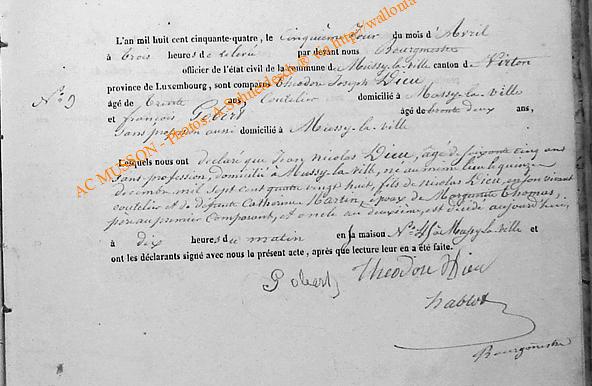 L'an mil huit cent cinquante-quatre, le cinquième jour du mois d'Avril
à trois heures de relevé par devant nous Bourgmestre
officier de l'état civil de la commune de Mussy-la-ville canton de Virton
province de Luxembourg, sont comparus Théodore Joseph Dieu
N° 9
âgé de trente ans, Coutelier domicilié à Mussy-la-ville
et françois Pobert âgé de trente deux ans,
sans profession aussi domicilié à Mussy-la-ville
Lesquels nous ont déclaré que Jean Nicolas Dieu, âgé de soixante cinq ans
sans profession, domicilié à Mussy-la-ville, né au même lieu le quinze
decembre mil Sept cent quatre vingt huit, fils de Nicolas Dieu en son vivant
coutelier et de défunte Catherine Martin, époux de Marguerite Thomas,
père au premier Comparant, et oncle au deuxième, est décédé aujourd'hui
à dix heures du matin en sa maison N° 46 à Mussy-la-ville et
ont les déclarants signé avec nous le présent acte, après que lecture leur en a été faite.
Pobert théodore Dieu
hablot
Bourgmestre
AC MUSSON - Photos: A.Schmedexth @ via http://wallonia